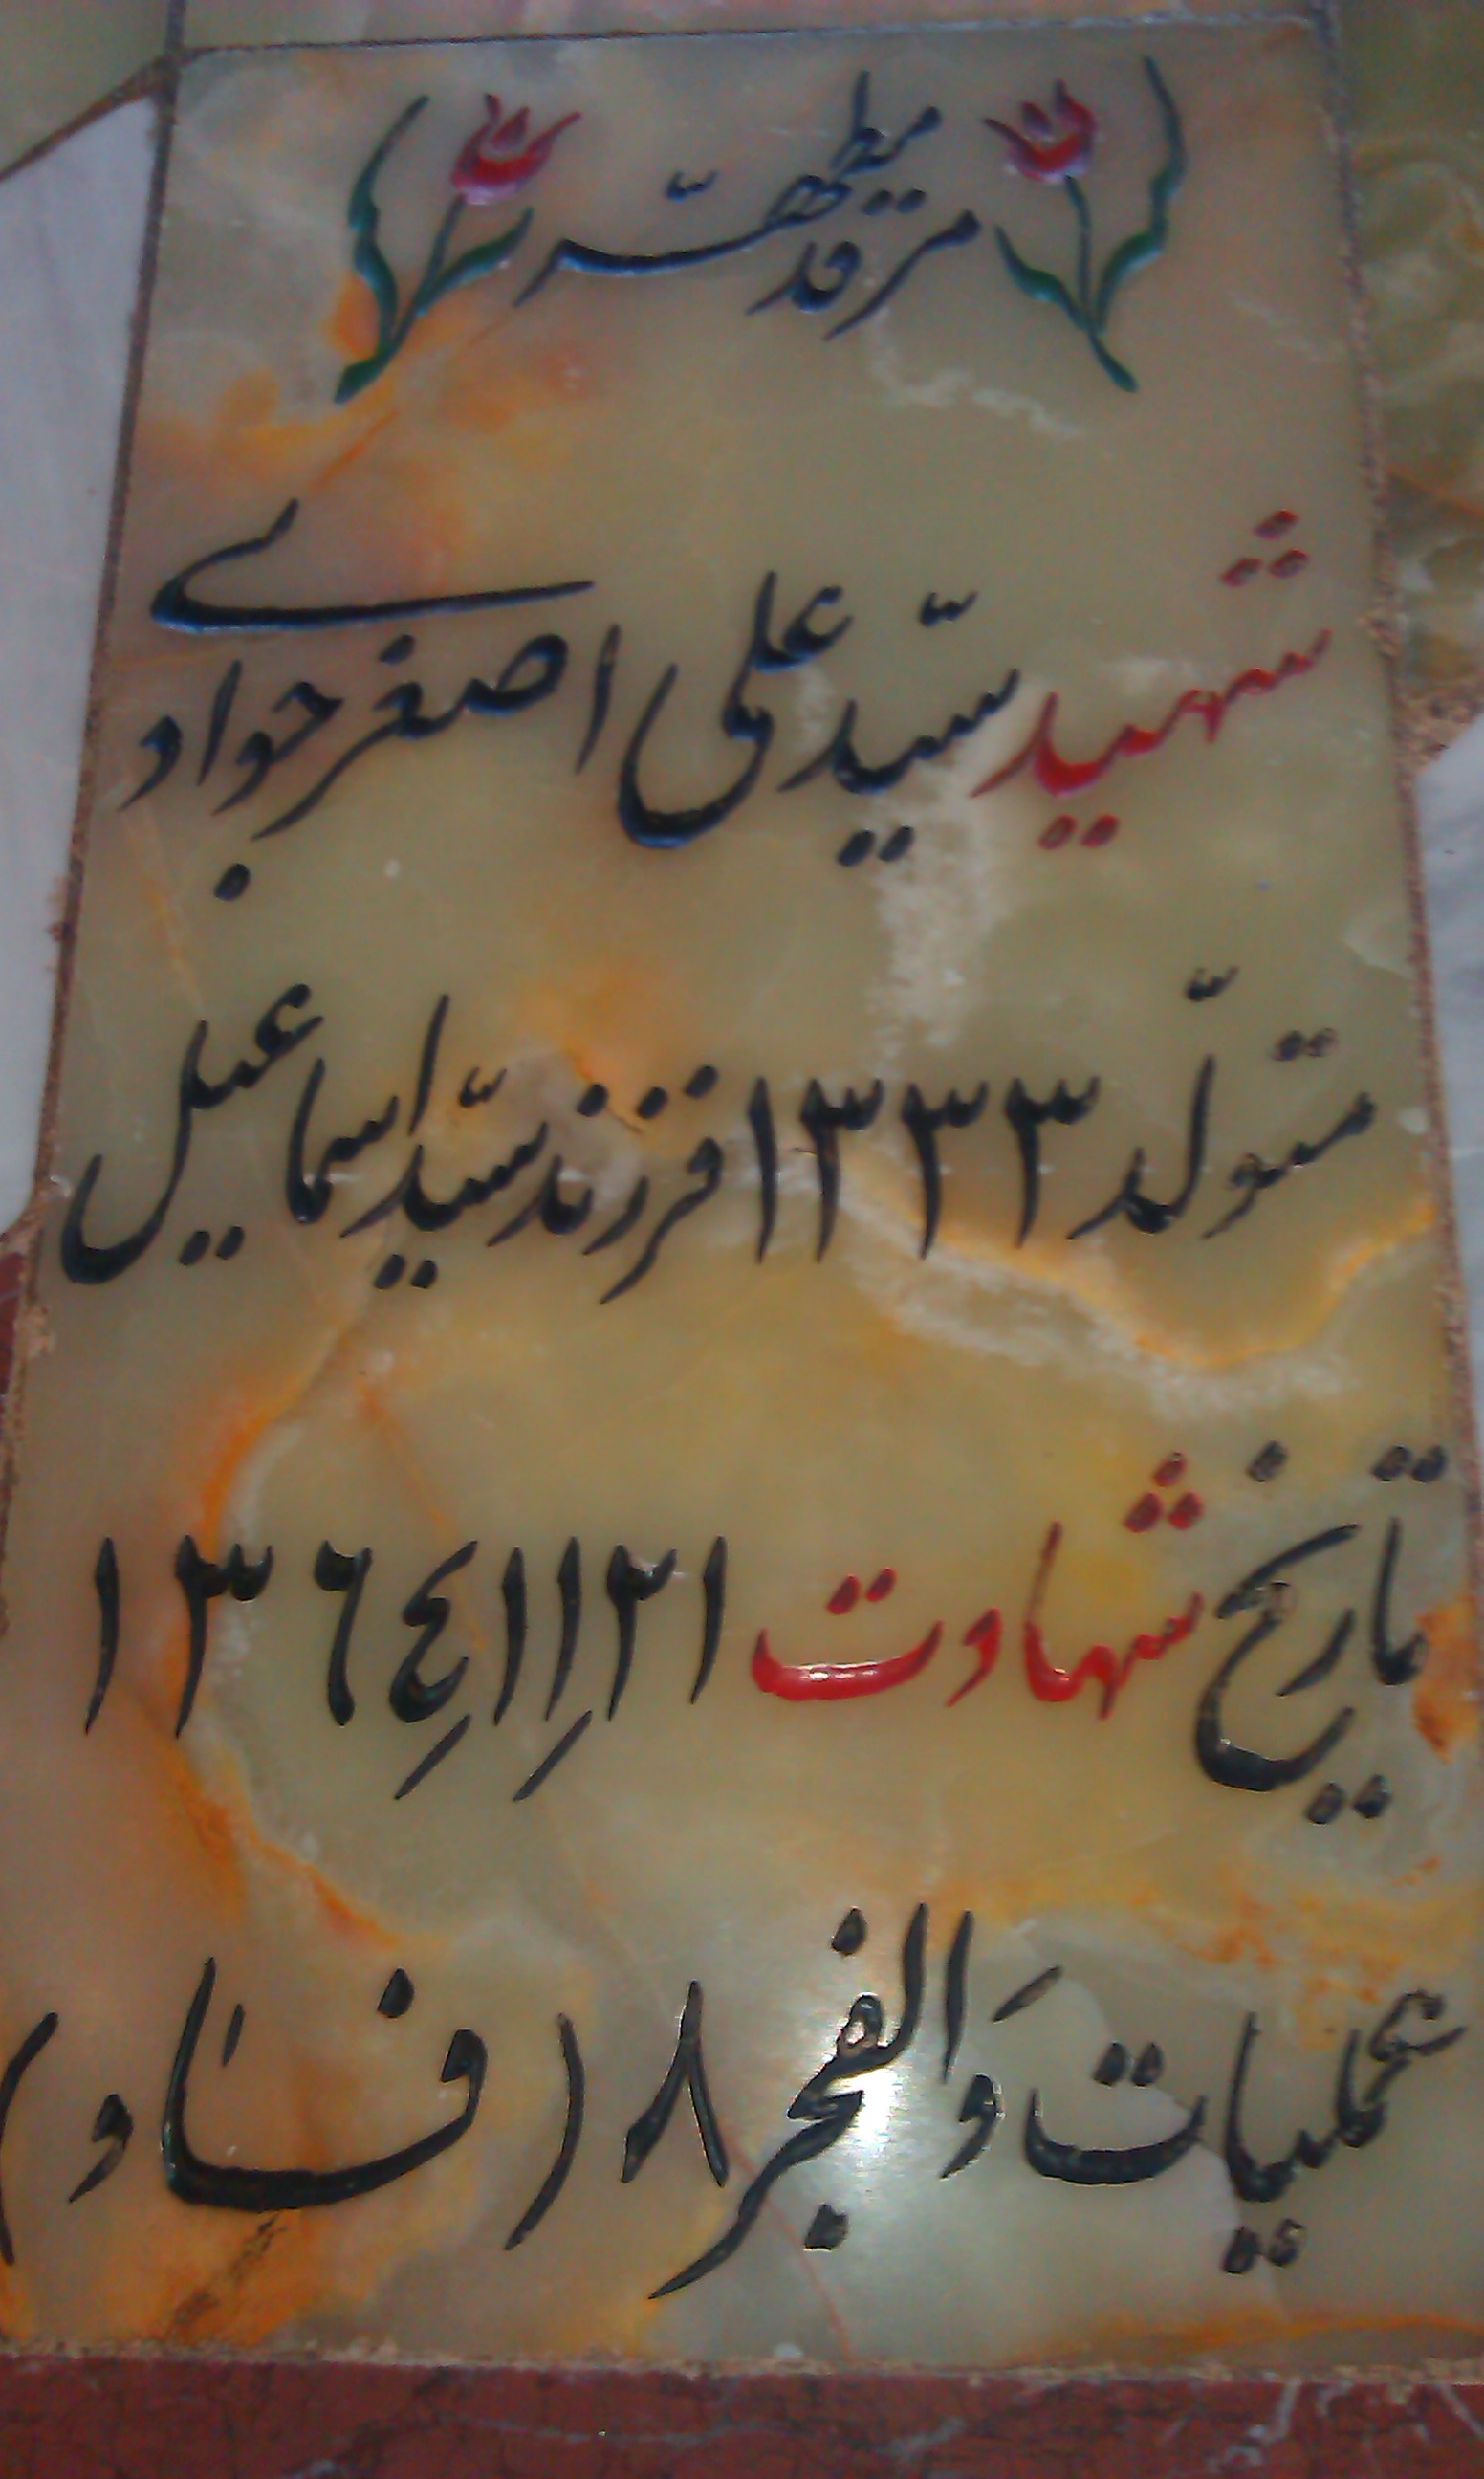 مرقد مطهّر
شهید سیّد علی اصغر جوادی
متولّد ۱۳۳۳ فرزند سیّد اسماعیل
تاریخ شهادت ۲۱/۱۱/۱۳۶٤
عملیات وَالفجر ۸ (فاو)